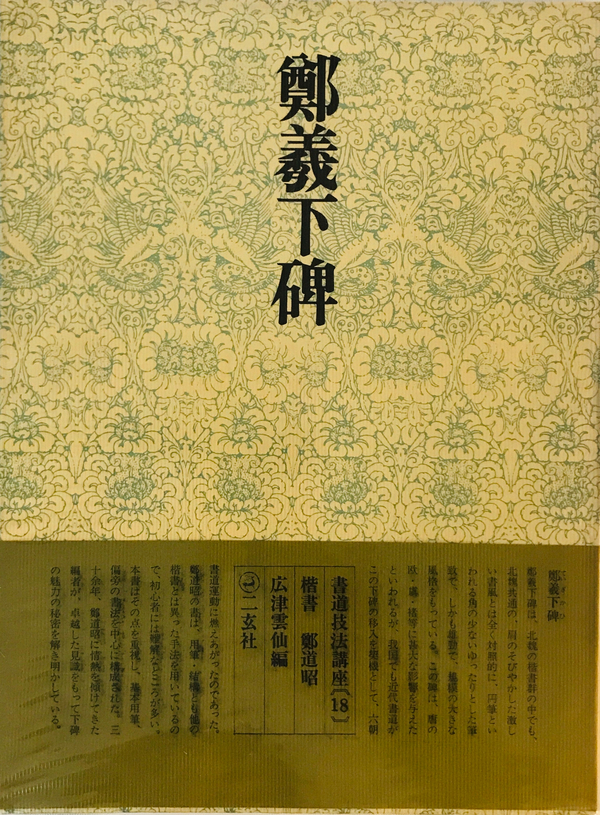 鄭羲下碑
鄭羲下碑
鄭羲下碑は、北魏の楷書群の中でも、
北魏共通の、肩のそびやかした激し
い書風とは全く対照的に、円筆とい
われる角の少ないゆったりとした筆
致で、しかも雄勁で、規模の大きな
風格をもっている。この碑は、唐の
欧・虞・褚等に甚大な影響を与えた
といわれるが、我国でも近代書道が
この下碑の移入を契機として、六朝
書道技法講座〔18〕
楷書 鄭道昭
広津雲仙編
二玄社
書道運動に燃えあがったのであった。
鄭道昭の書は、用筆・結構とも他の
楷書とは異った手法を用いているの
で、初心者には難解なところが多い。
本書はその点を重視し、基本用筆、
偏旁の書法を中心に構成された。三
十余年、鄭道昭に情熱を傾けてきた
編者が、卓越した見識をもって下碑
の魅力の秘密を解き明かしている。